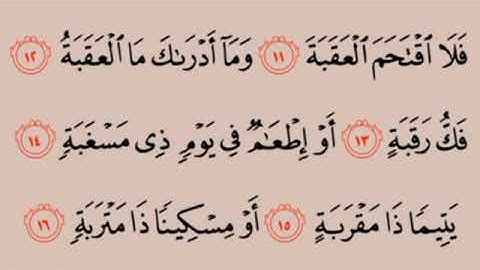 فَلَا ٱقۡتَحَمَ ٱلۡعَقَبَةَ ١١ وَمَآ أَدۡرَىٰكَ مَا ٱلۡعَقَبَةُ ١٢
فَكُّ رَقَبَةٍ ١٣ أَوۡ إِطۡعَٰمٞ فِي يَوۡمٖ ذِي مَسۡغَبَةٖ ١٤
يَتِيمٗا ذَا مَقۡرَبَةٍ ١٥ أَوۡ مِسۡكِينٗا ذَا مَتۡرَبَةٖ ١٦